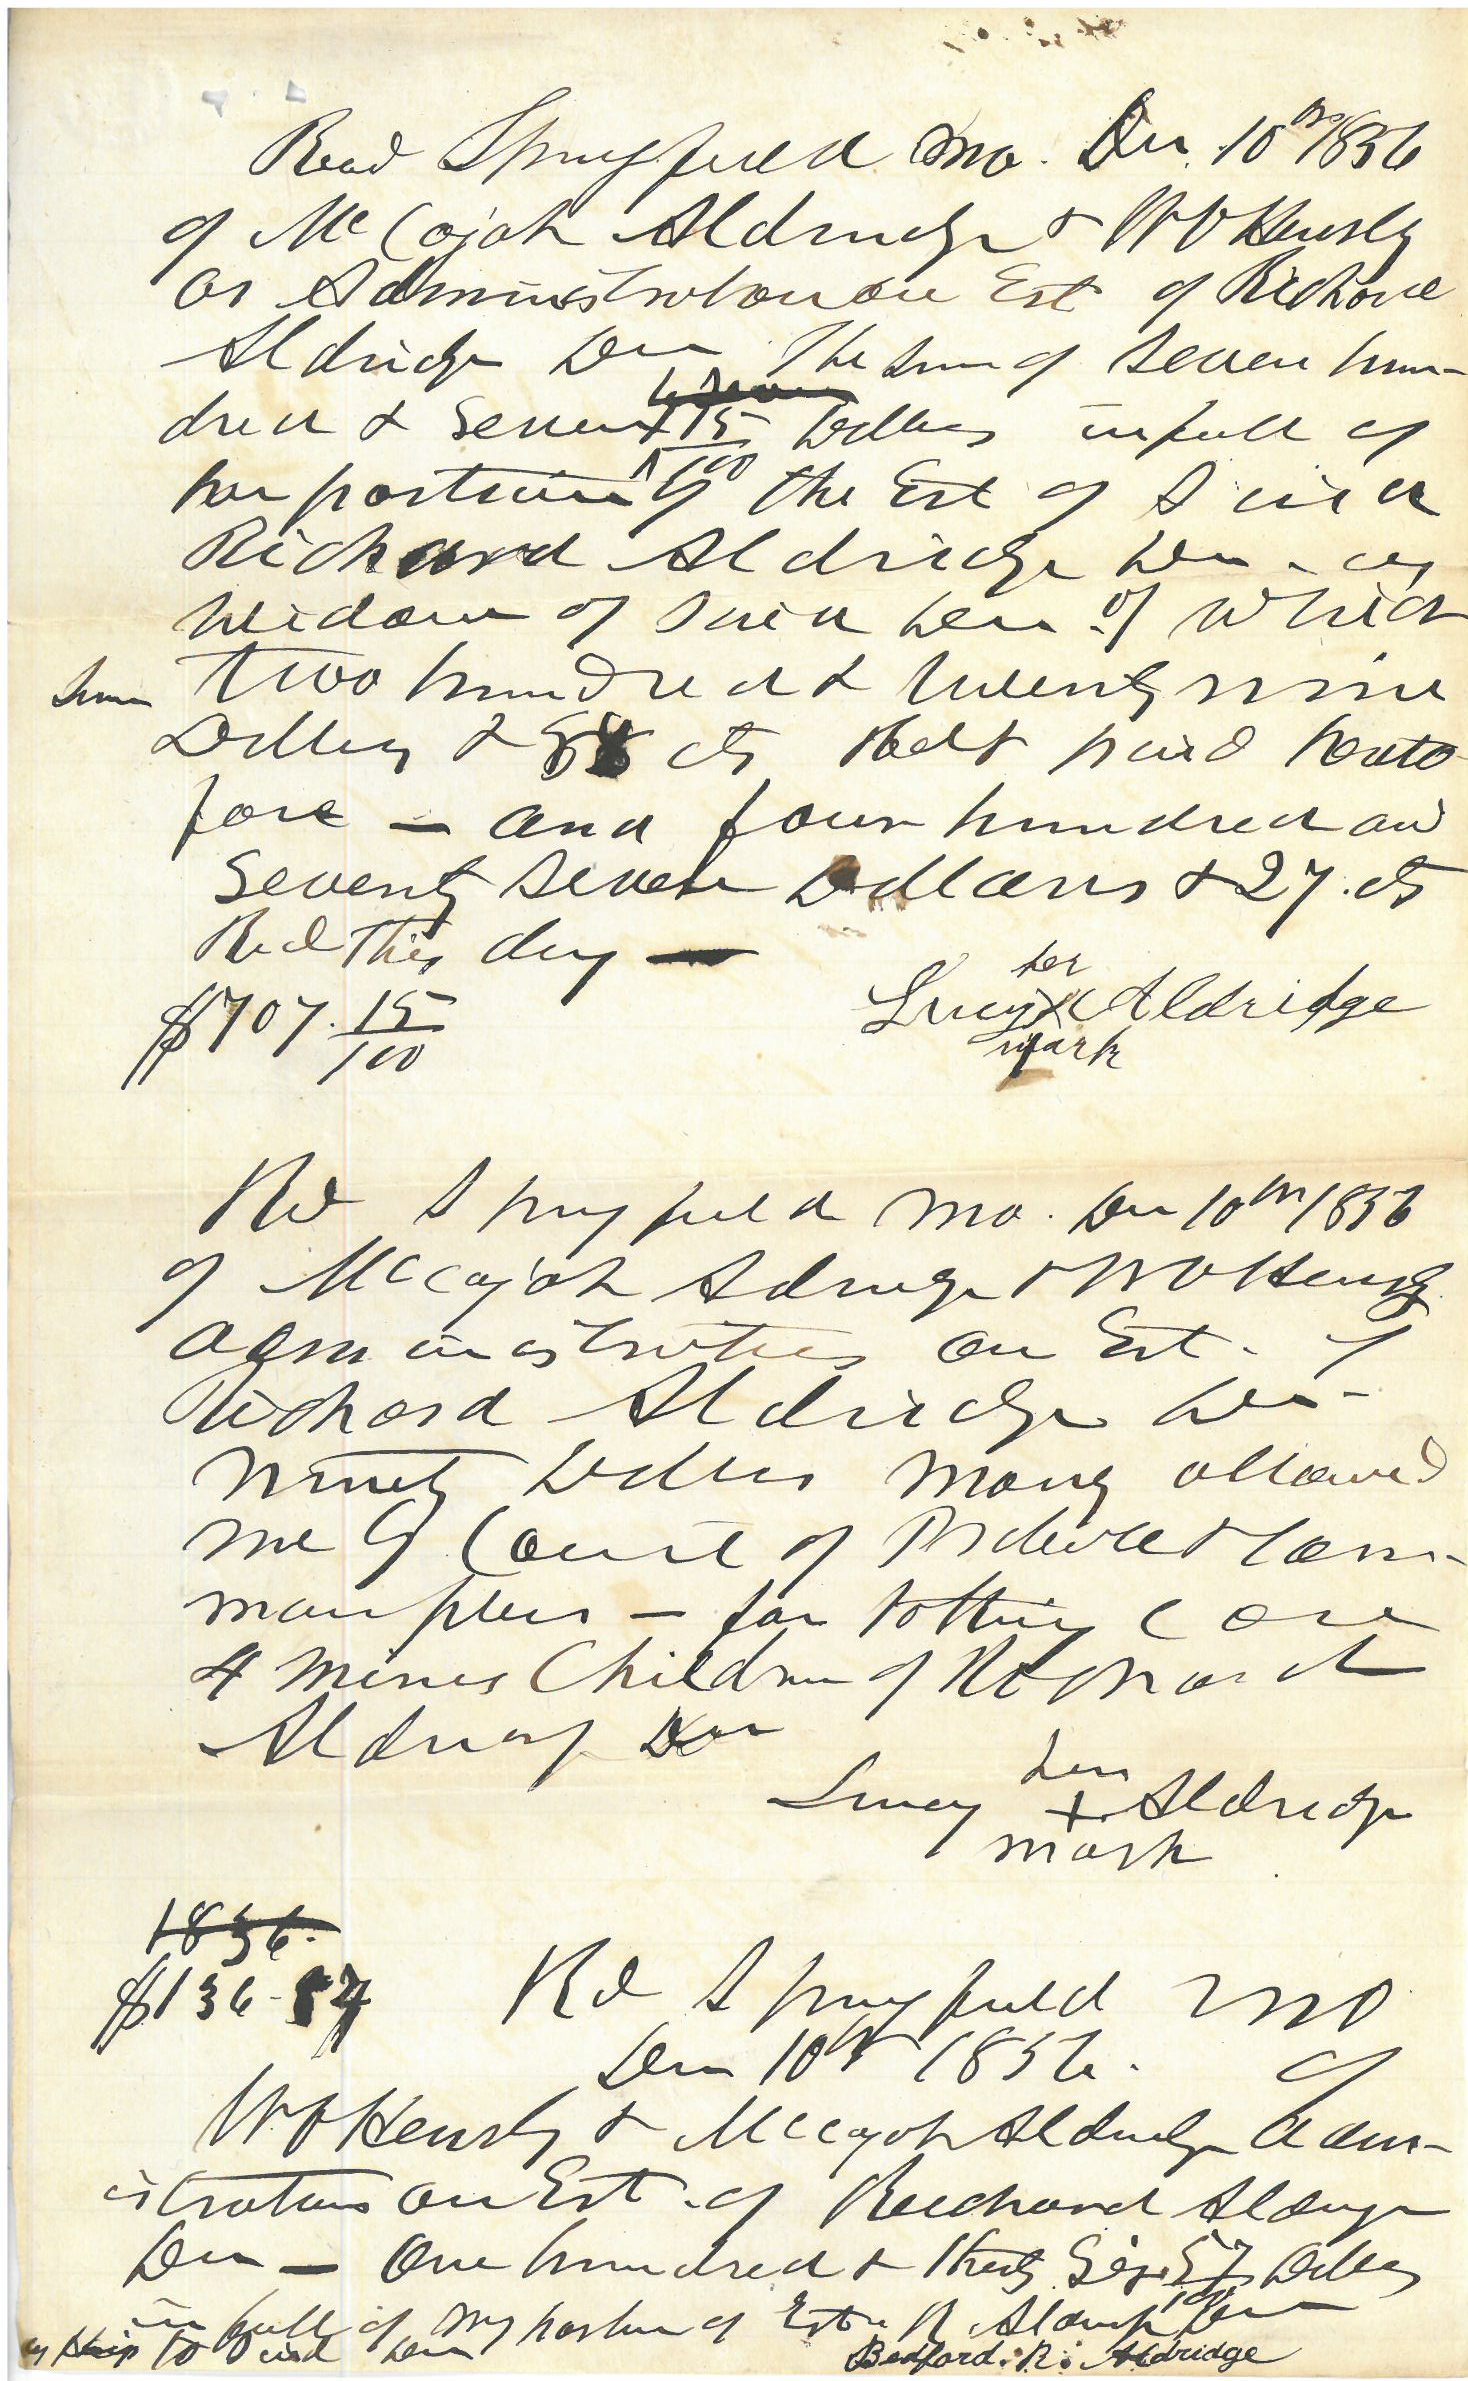 Recd Springfield Mo. Dec. 10th 1856
of McCajah Aldridge & W V Hensly
as Administrators on Est of Richard
Aldridge Dec The sum of seven hun-
dred & seven 15/100 Dollars in full of
her portion of the Est of Said
Richard Aldridge Dec - as
widow of said Dec of which
sum two hundred & twenty nine
Dollars & 88 cts paid hereto
fore — and four hundred and
seventy seven Dollars & 27 cts
Recd This day —
$707. 15/100
her
Lucy X Aldridge
mark
Recd Springfield Mo. Dec 10th 1856
of McCajah Aldridge & W V Hensly
administrators on Est. of
Richard Aldridge Dec -
Ninety Dollars Money allowed
me by Court of Probate & Com-
mon pleas — for taking care
4 minor Children of Richard
Aldridge Dec
her
Lucy + Aldridge
mark
1836.
$136-57
Recd Springfield Mo
Dec 10th 1856. of
W V Hensly & McCajah Aldridge Admin-
istrators on Est. of Richard Aldridge
Dec — One hundred & thirty Six 57/100 Dollars
in full of my portion of Est. R Aldridge Dec
as heir to said Dec
Bedford. R. Aldridge